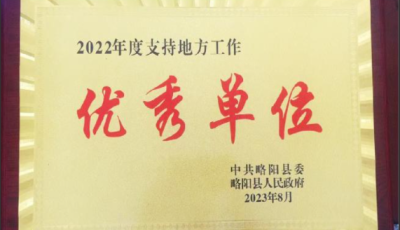 2022年度支持地方工作
优秀单位
中共略阳县委
略阳县人民政府
2023年8月